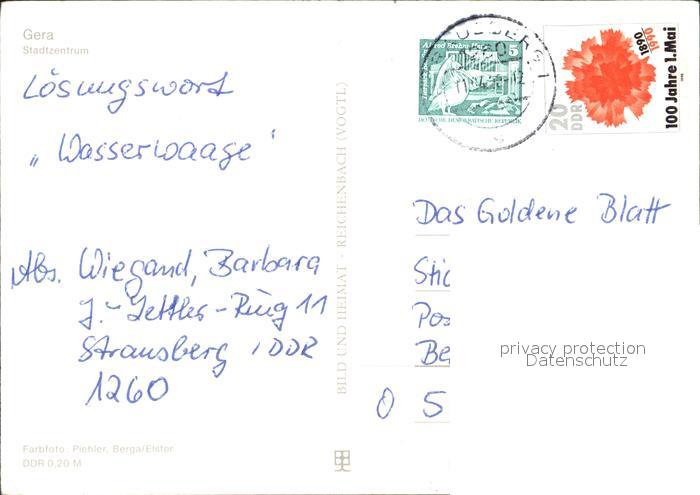 Gera
Stadtzentrum
Lösungswort
„Wasserwaage"
Abs. Wiegand, Barbara
J.-Zettler-Ring 11
Strausberg, DDR
1260
Farbfoto: Piehler, Berga/Elster
DDR 0,20 M
BILD UND HEIMAT · REICHENBACH (VOGTL)
Alfred Brehm Haus
5
DEUTSCHE DEMOKRATISCHE REPUBLIK
20
DDR
1890
1990
100 Jahre 1. Mai
Das Goldene Blatt
Stic
Pos
Be
O 5
privacy protection
Datenschutz